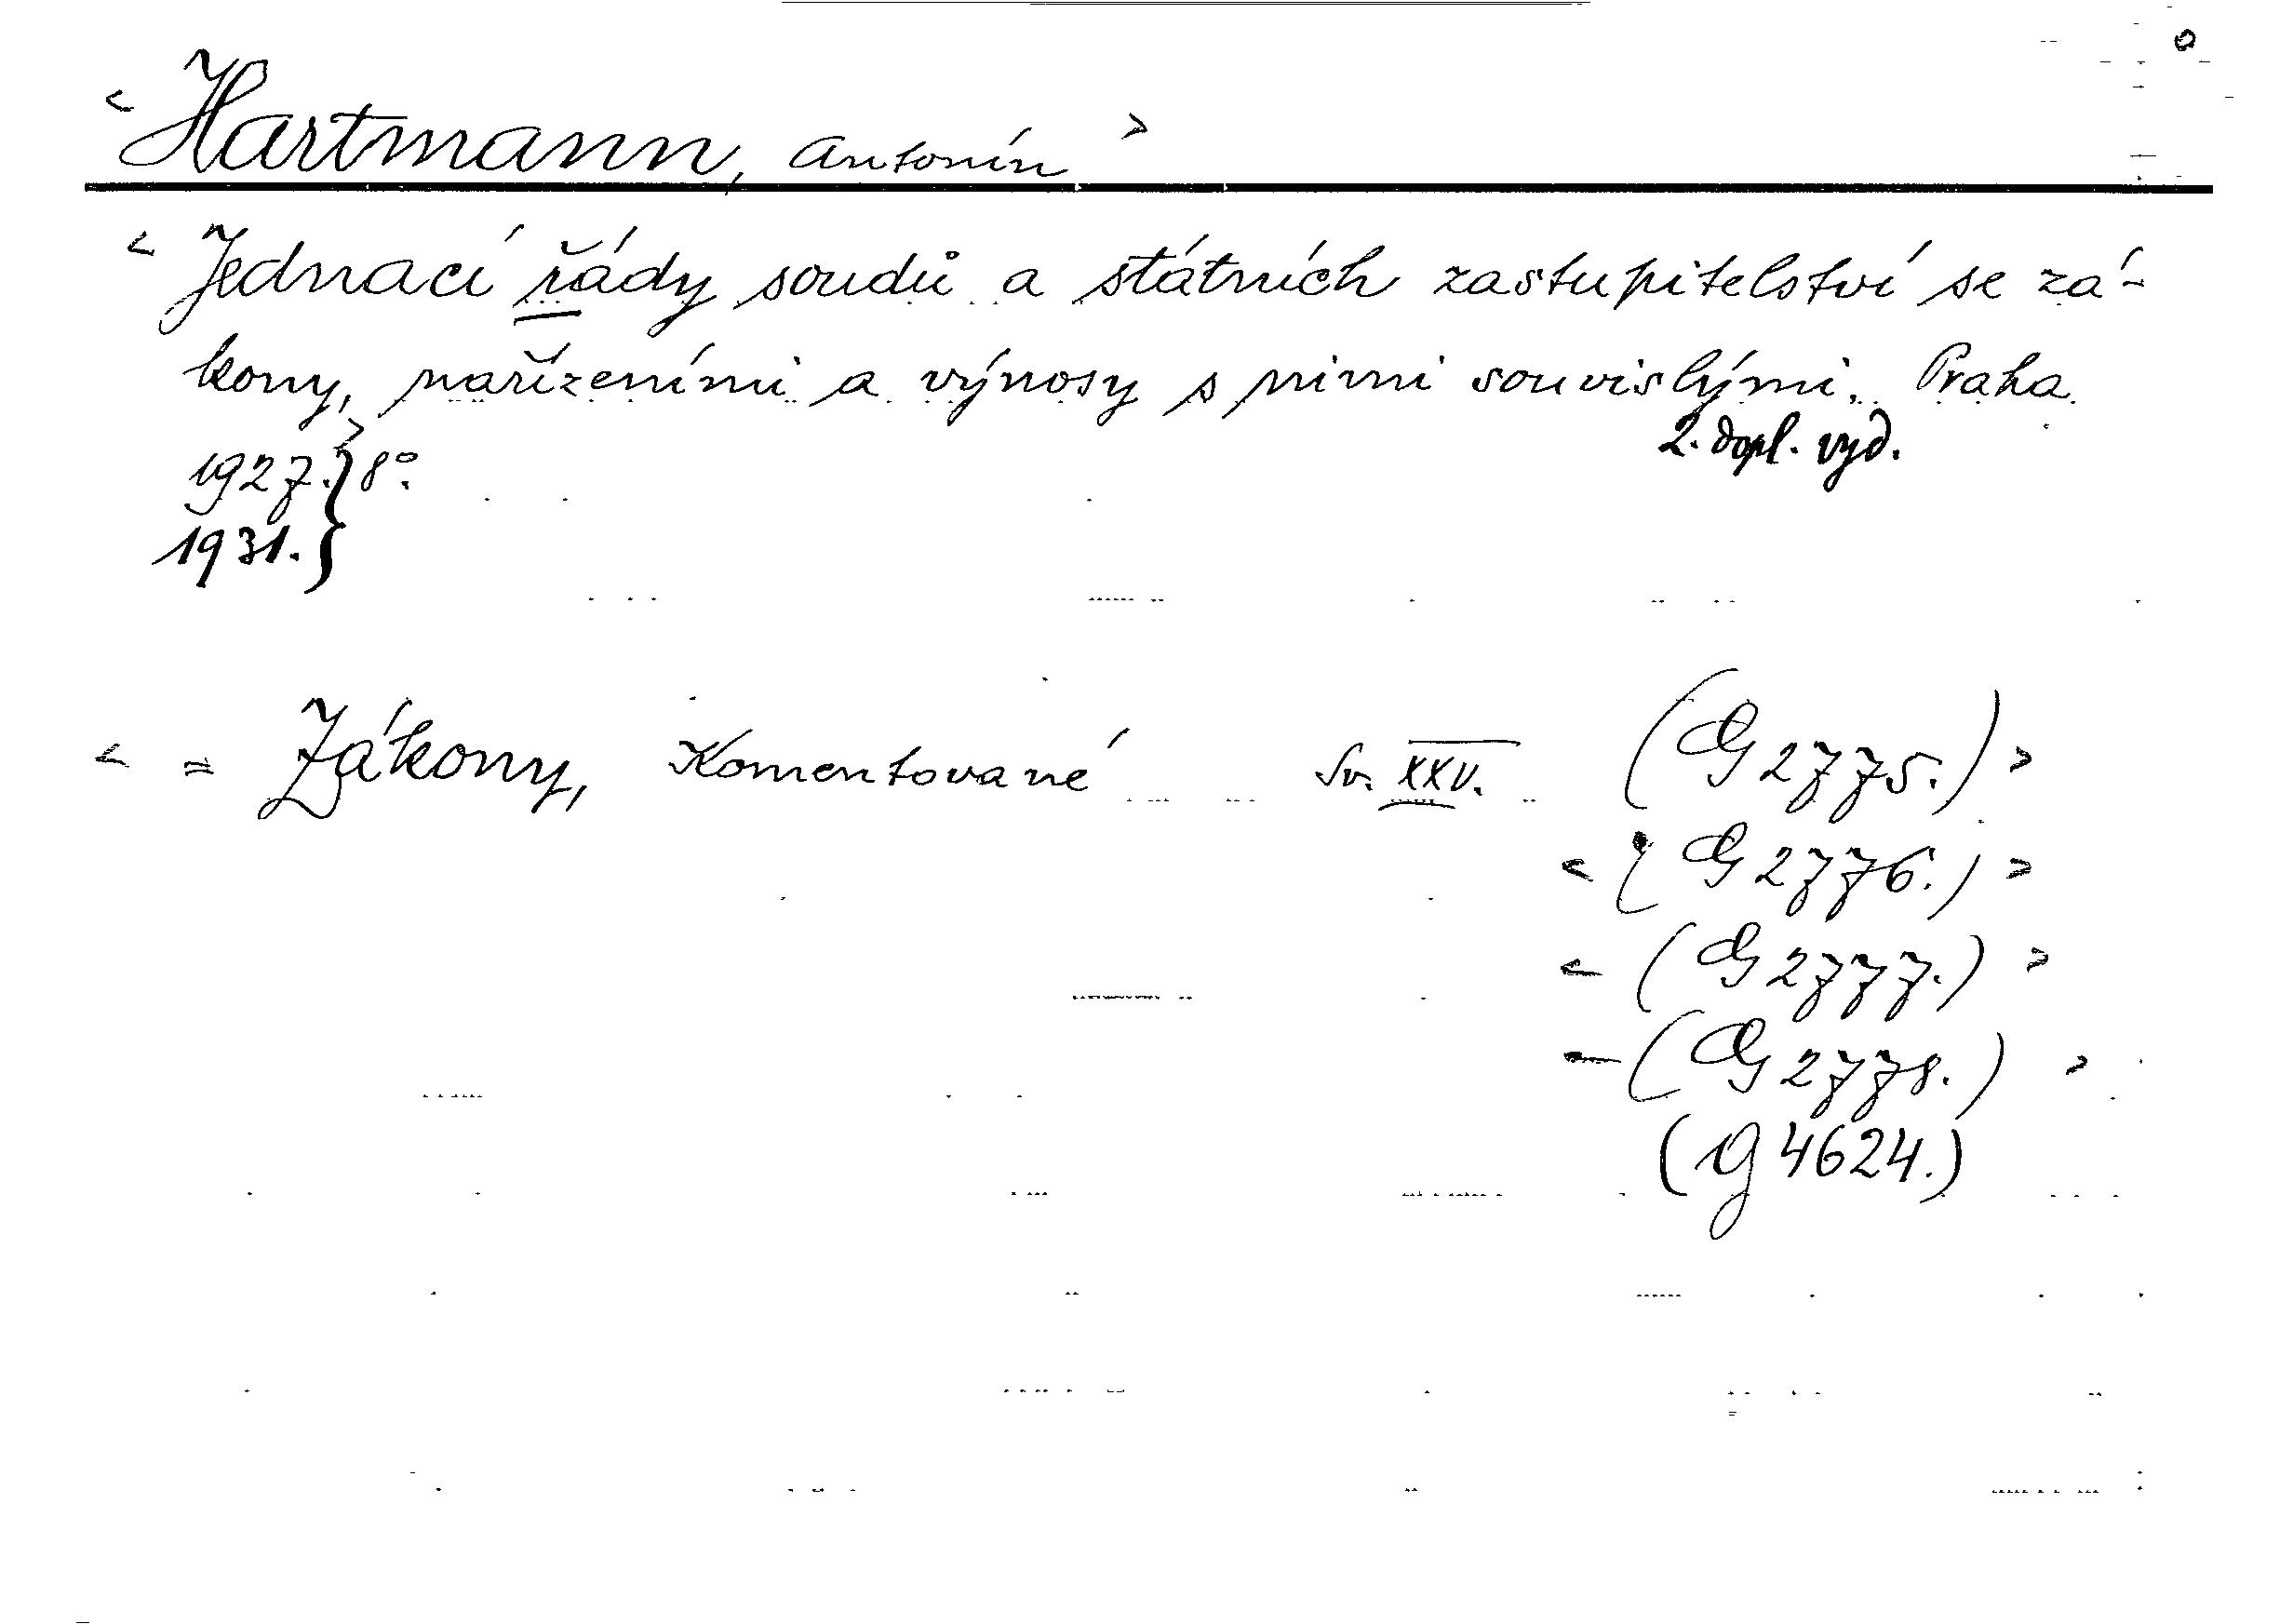 < Hartmann, Antonín >
< Jednací řády soudů a státních zastupitelství se zá-
kony, nařízeními a výnosy s nimi souvislými. Praha.
2. dopl. vyd.
1927.} 8°.
1931.}
< = Zákony, Komentované Sv. XXV. (G 2775.) >
< (G 2776.) >
< (G 2777.) >
- (G 2778.) >
(g 4624.)